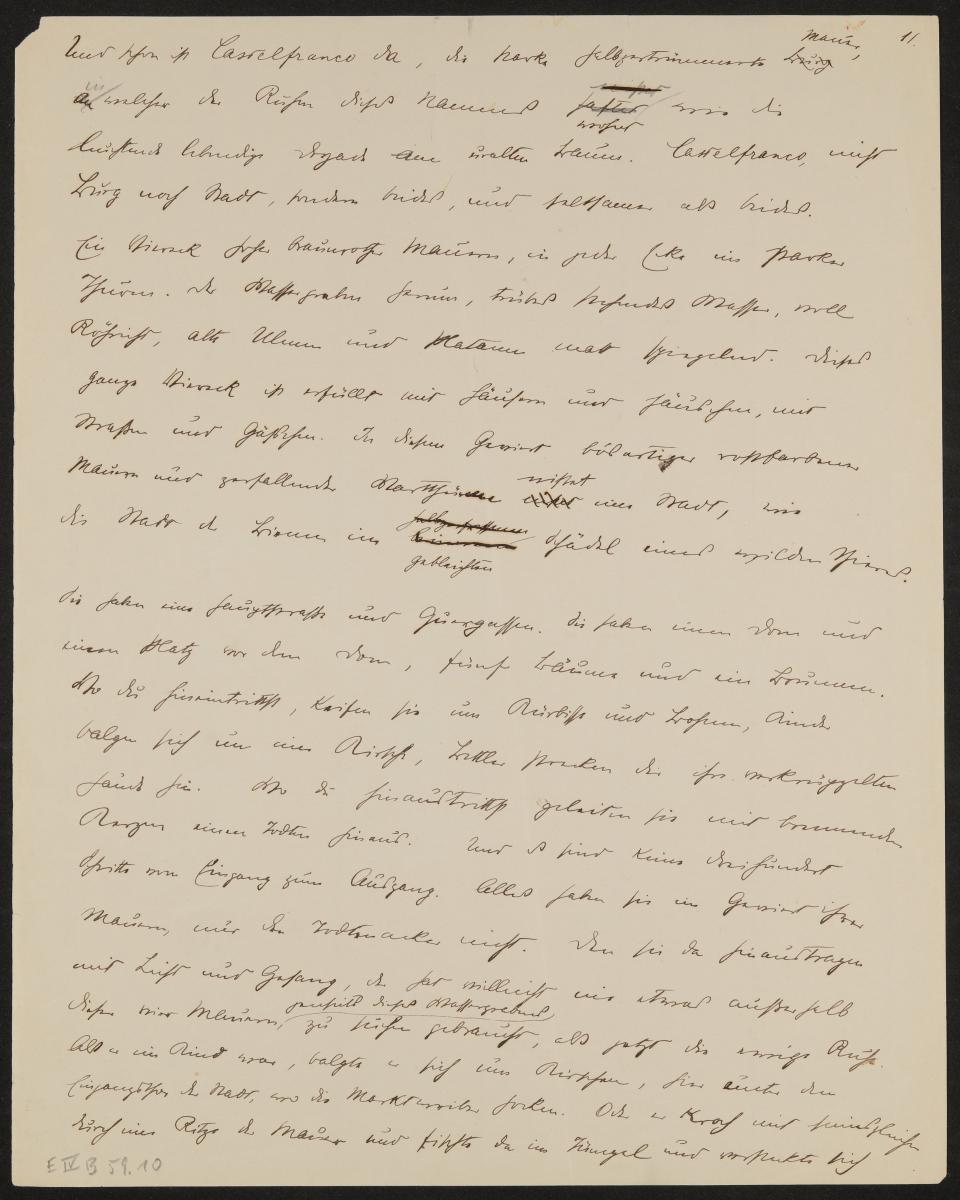 11.
Und schon ist Castelfranco da, die starke halbzertrümmerte Burg Mauer,
an in welcher der Ruhm dieses Namens haftet wie die
wohnt
leuchtende lebendige Dryade am uralten Baum. Castelfranco, nicht
Burg noch Stadt, sondern beides, und seltsamer als beides.
Ein Viereck hoher braunrother Mauern, in jeder Ecke ein starker
Thurm. Der Wassergraben herum, trübes stehendes Wasser, voll
Röhricht, alte Ulmen und Platanen matt spiegelnd. Dieses
ganze Viereck ist erfüllt mit Häusern und Häuschen, mit
Straßen und Gäßchen. In diesem Geviert bösartiger rostfarbener
Mauern und zerfallender Wartthürme nistet eine Stadt, wie
die Stadt der Bienen im gebleichten Schädel eines wilden Thieres.
Sie haben eine Hauptstraße und Quergassen. Sie haben einen Dom und
einen Platz vor dem Dom, fünf Bäume und ein Brunnen.
Wo du hineintrittst, keifen sie um Kürbisse und Bohnen, Kinder
balgen sich um eine Kirsche, Bettler strecken dir ihre verkrüppelten
Hände hin. Wo du hinaustrittst geleiten sie mit brennenden
Kerzen einen Todten hinaus. Und es sind keine dreihundert
Schritte vom Eingang zum Ausgang. Alles haben sie im Geviert ihrer
Mauern, nur den Todtenacker nicht. Den sie da hinaustragen
mit Licht und Gesang, der hat vielleicht nie etwas außerhalb
dieser vier Mauern, jenseits dieses Wassergrabens zu suchen gebraucht, als jetzt die ewige Ruhe.
Als er ein Kind war, balgte er sich um Kirschen, hier unter dem
Eingangsthor der Stadt, wo die Marktweiber hocken. Oder er kroch mit seinesgleichen
durch eine Ritze der Mauer und fischte da im Tümpel und versteckte sich
E IV B 59.10